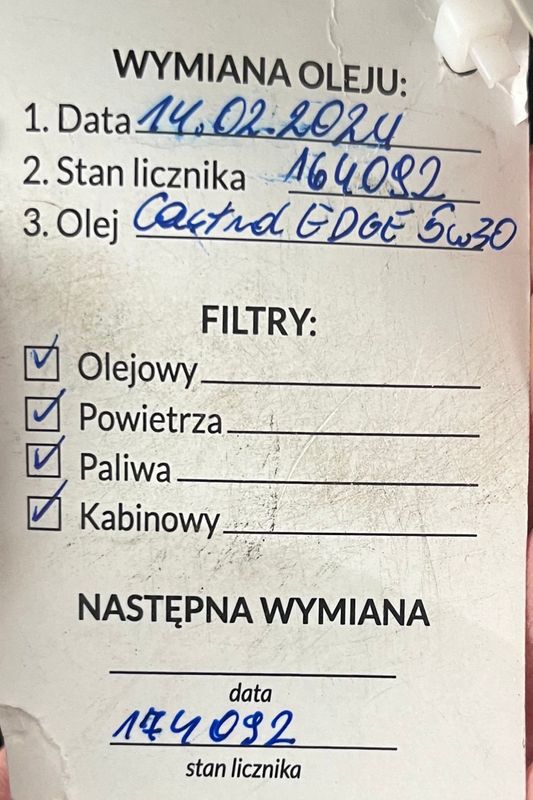 WYMIANA OLEJU:
1. Data 14.02.2024
2. Stan licznika 164092
3. Olej Castrol EDGE 5w30
FILTRY:
Olejowy
Powietrza
Paliwa
Kabinowy
NASTĘPNA WYMIANA
data
174092
stan licznika